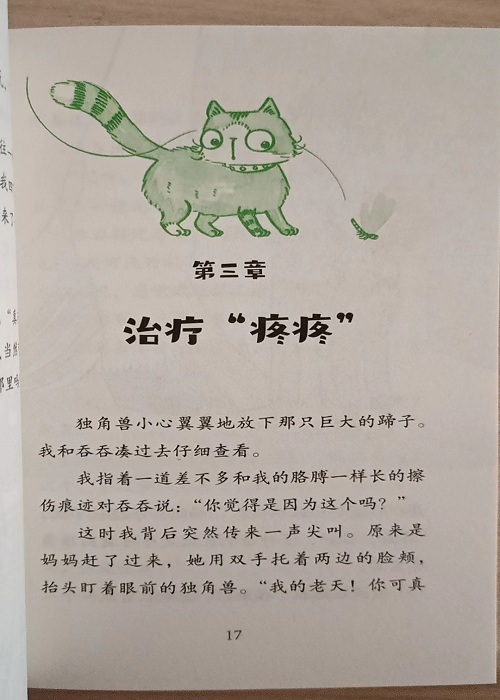 第三章
治疗“疼疼”
独角兽小心翼翼地放下那只巨大的蹄子。
我和吞吞凑过去仔细查看。
我指着一道差不多和我的胳膊一样长的擦
伤痕迹对吞吞说：“你觉得是因为这个吗？”
这时我背后突然传来一声尖叫。原来是
妈妈赶了过来，她用双手托着两边的脸颊，
抬头盯着眼前的独角兽。“我的老天！你可真
17